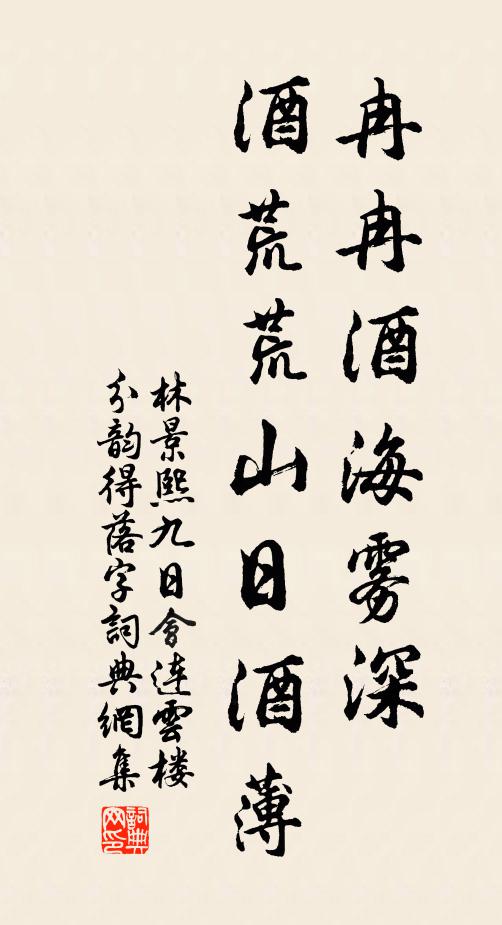 冉冉酒海雾深
酒荒荒山日酒薄
林景熙九日會连雲楼
分韵得落字詞典網集
詞典網印